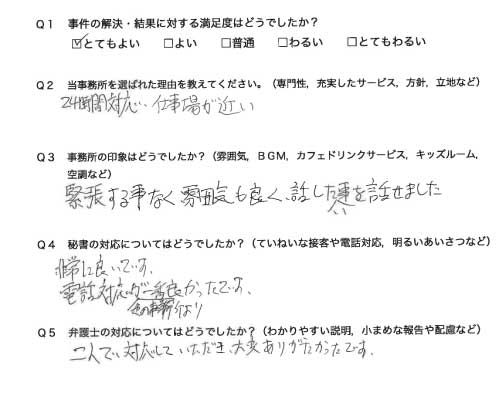 Q1 事件の解決・結果に対する満足度はどうでしたか?
☑とてもよい □よい □普通 □わるい □とてもわるい
Q2 当事務所を選ばれた理由を教えてください。(専門性,充実したサービス,方針,立地など)
24時間対応、仕事場が近い
Q3 事務所の印象はどうでしたか?(雰囲気,BGM,カフェドリンクサービス,キッズルーム,
空調など)
緊張する事なく雰囲気も良く、話したい事を話せました
Q4 秘書の対応についてはどうでしたか?(ていねいな接客や電話対応,明るいあいさつなど)
非常に良いです。
電話対応が一番良かったです。
他の事務所より
Q5 弁護士の対応についてはどうでしたか?(わかりやすい説明,小まめな報告や配慮など)
二人で対応していただき、大変ありがたかったです。